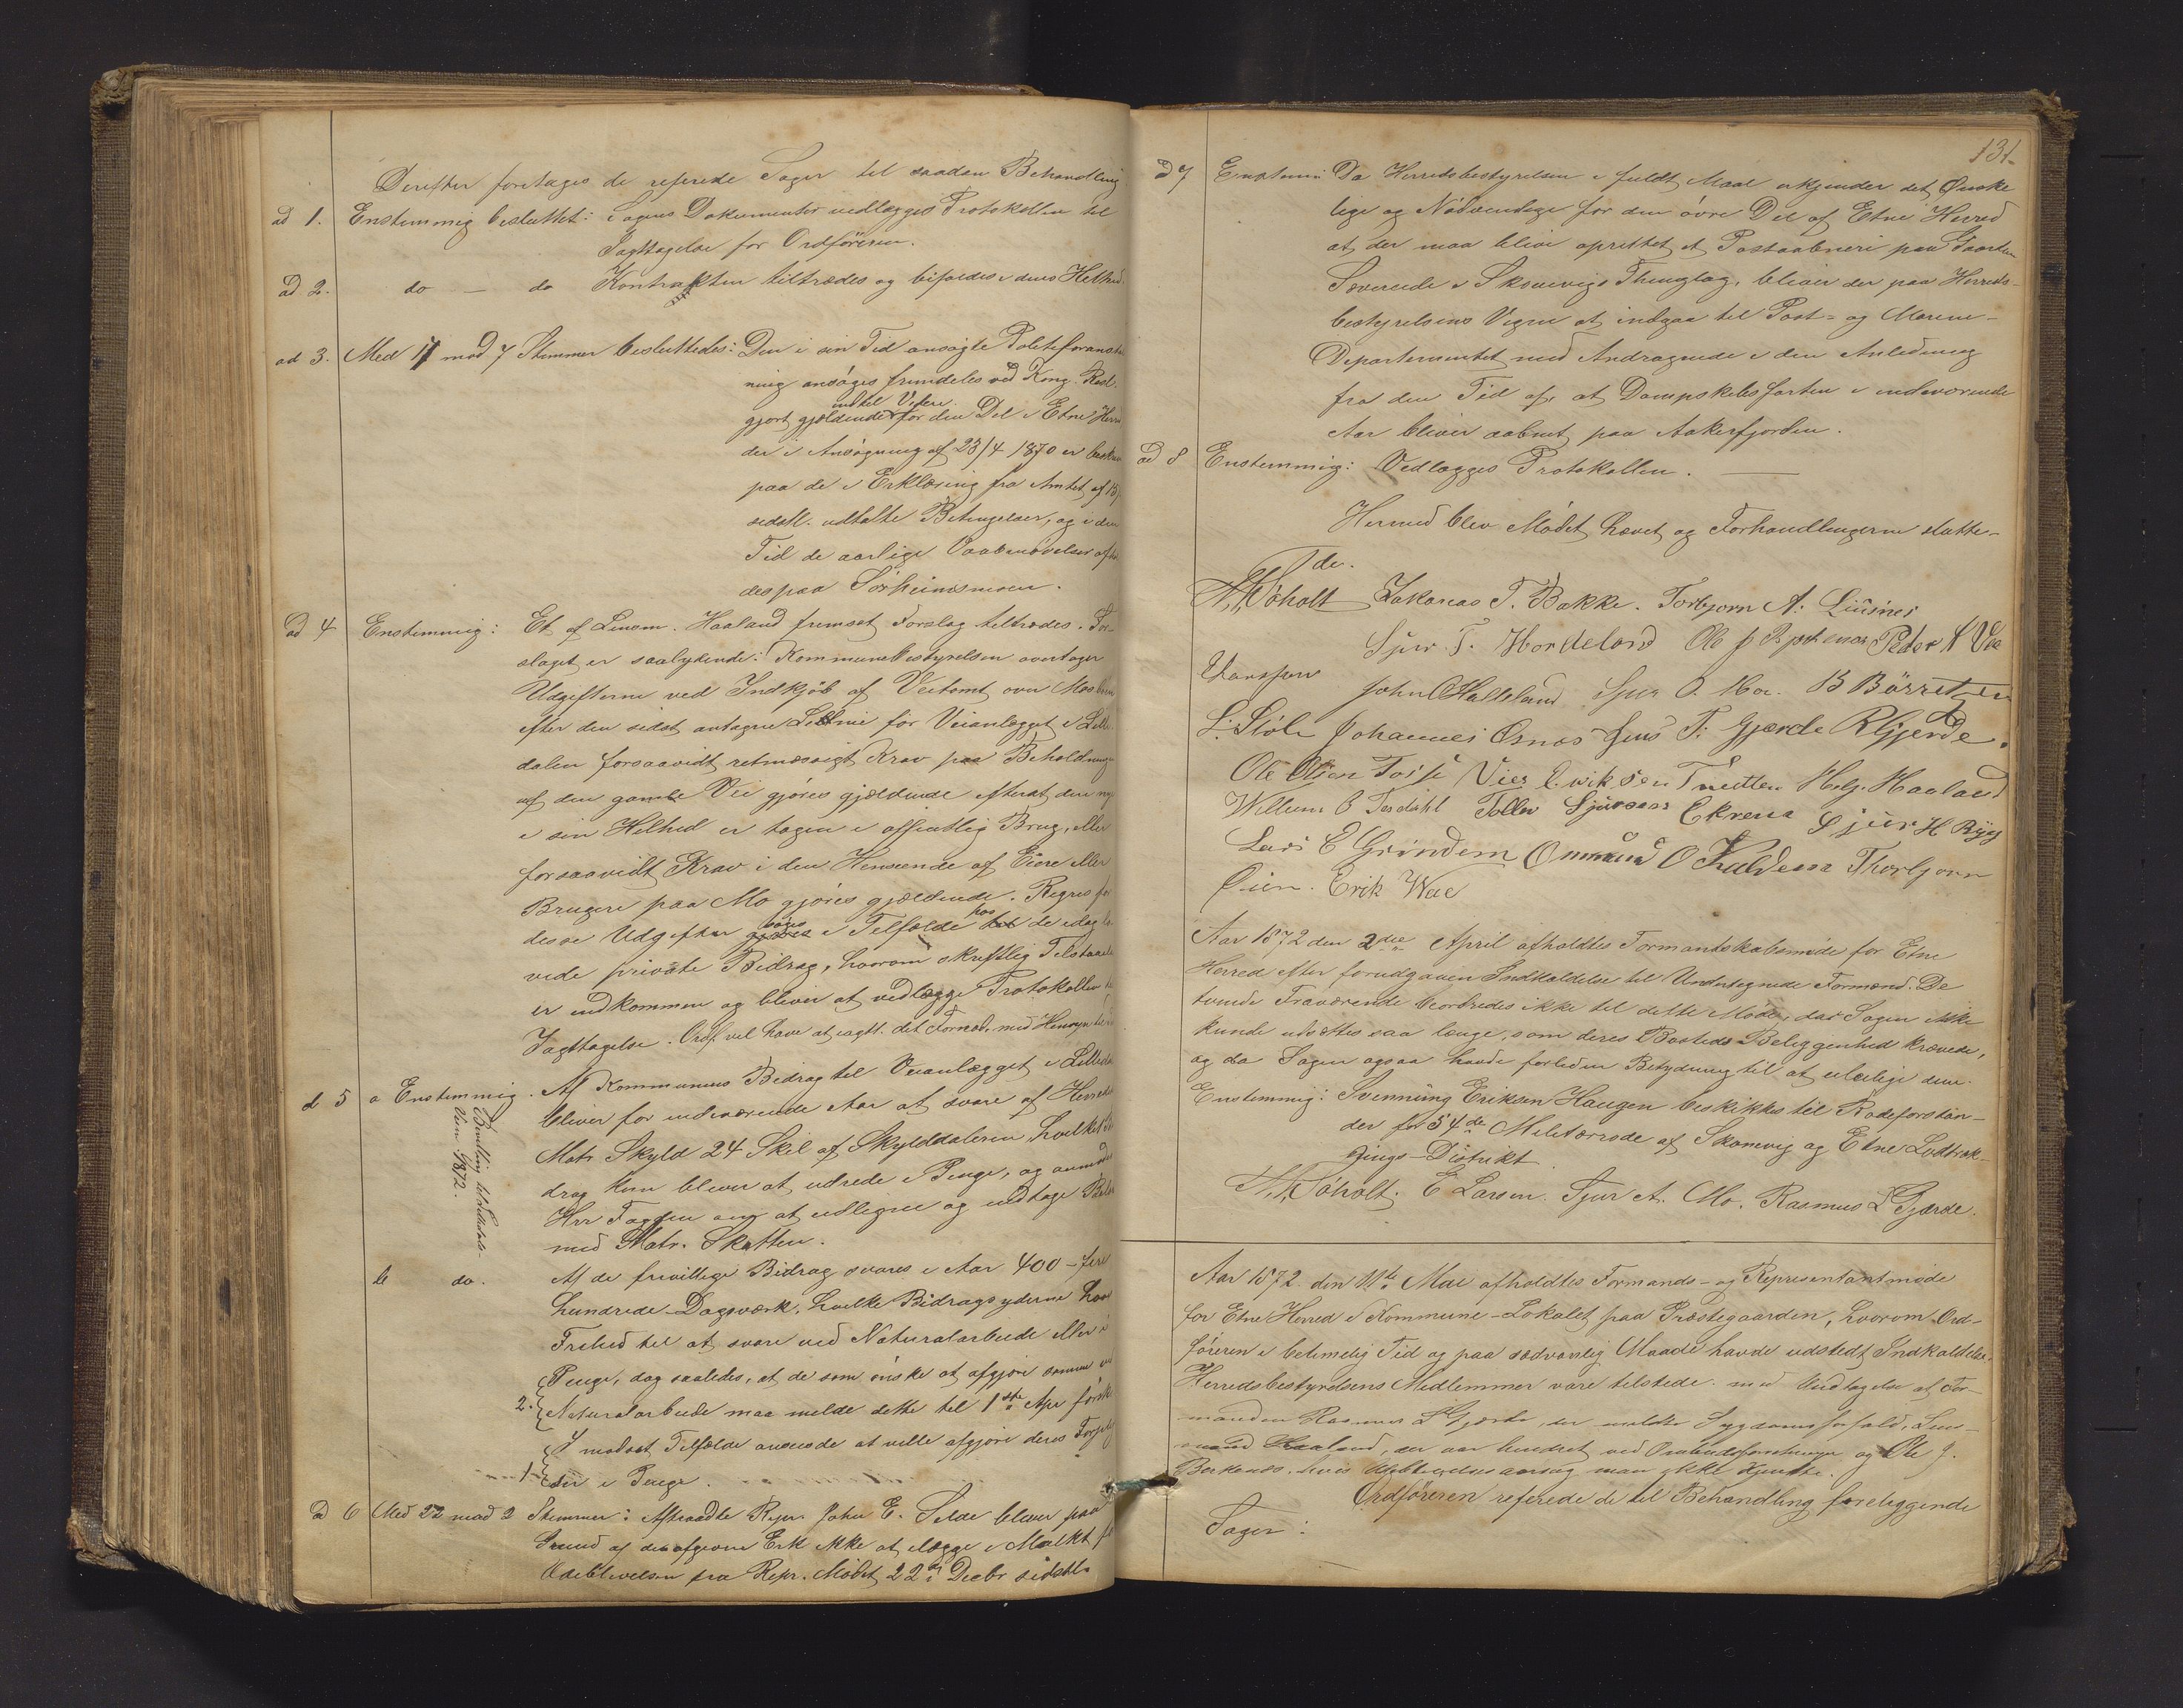 Derefter foretages de refererede Sager til saadan Behandling
ad 1. Enstemmig besluttet: Sagens Dokumenter vedlægges Protokollen til
Iagttagelse for Ordføreren.
ad 2. do — do Kontrakten tiltrædes og bifaldes i dens Helhed.
ad 3. Med 17 mod 7 Stemmer besluttedes: Den i sin Tid ansøgte Politiforanstalt
ning ansøges fremdeles ved Kong. Resl.
indtil Videre.
gjort gjældende for den Del i Etne Herred
der i Ansøgning af 23/4 1870 er
paa de i Erklæring fra Amtet af 13/
sidstl. udtalte Betingelser, og i den
Tid de aarlige Vaabenøvelser afhol
des paa Sørheimsmoen.
ad 4 Enstemmig: Et af Lensm. Haaland fremsat Forslag tiltrædes. For-
slaget er saalydende: Kommunebestyrelsen overtager
Udgifterne ved Indkjøb af Veitomt over
efter den sidst antagne Linie for Veianlægget i Litle-
dalen forsaavidt retmæssigt Krav paa Beholdningen
af den gamle Vei gjøres gjældende efterat den nye
i sin Helhed er tagen i offentlig Brug, eller
forsaavidt Krav i den Henseende af Eiere eller
Brugere paa Mo gjøres gjældende. Regres for
søges hos
disse Udgifter gjøres i Tilfælde hos de
vede private Bidrag, hvorom skriftlig Tilstaaelse
er indkommen og bliver at vedlægge Protokollen til
Iagttagelse. Ordf. vil have at iagtt. det Fornød. med Hensyn
d 5 a Enstemmig. Af Kommunens Bidrag til Veianlægget i Litledalen
bliver for indeværende Aar at svare af Herredets
Matr. Skyld 24 Skil af Skylddaleren, hvilket Bi-
drag kun bliver at udrede i Penge, og anmodes
Hrr Fogden om at udligne og indtage
med Matr. Skatten.
Vien 1872.
b do. Af de frivillige Bidrag svares i Aar 400 - fire
hundrede Dagsværk, hvilke Bidragsyderne have
Frihed til at svare ved Naturalarbeide eller i
Penge, dog saaledes, at de som ønske at afgjøre samme ved
2. Naturalarbeide maa melde dette til 1ste Apr først
I modsat Tilfælde ansees de at ville afgjøre deres
1. i Penge.
ad 6 Med 22 mod 2 Stemmer: Aftraadte Repr. John E. Silde bliver paa
Grund af den afgivne Erkl ikke at ilægge i Mulkt for
Udeblivelsen fra Repr. Mødet 22de Decbr sidstl.
131.
d 7 Enstem: Da Herredsbestyrelsen i fuldt Maal erkjender det Ønske
lige og Nødvendige for den øvre Del af Etne Herred
at der maa blive oprettet et Postaabneri paa Gaarden
Severeide i Skonevigs Thinglag, bliver der paa Herreds-
bestyrelsens Vegne at indgaa til Post- og Marine-
Departementet med Andragende i den Anledning
fra den Tid af, at Dampskibsfarten i indeværende
Aar bliver aabnet paa Aakrefjorden.
ad 8 Enstemmig: Vedlægges Protokollen.
Hermed blev Mødet hævet og Forhandlingerne slutte-
de.
Søholt Zakarias T. Bakke. Torbjørn A.
Sjur T. Hordeland Ole Peder
John Halleland Sjur O. Mo. B Børretzen
Støle Johannes Osnes Jens T. Gjærde R Gjerde.
Ole Olsen Vier Eriksen Tveitten Helg. Haaland
Willum O Tesdahl Tollev Sjursen Ekrena Sjur H Ryg
Lars E Grindem Ommund O Thorbjørn
Øien. Erik Wee
Aar 1872 den 2den April afholdtes Formandskabsmøde for Etne
Herred efter forudgaaen Indkaldelse til Undertegnede Formænd. De
tvende Fraværende beordredes ikke til dette Møde, da Sagen ikke
kunde udsættes saa længe, som deres Bosteds Beliggenhed krævede,
og da Sagen ogsaa havde forliden Betydning til at uleilige dem.
Enstemmig: Svenning Eriksen Haugen beskikkes til Rodeforstan-
der for 54de Militærrode af Skonevig og Etne Lodtræk-
nings-Distrikt.
Søholt. E Larsen. Sjur A. Mo. Rasmus L Gjærde.
Aar 1872 den 11te Mai afholdtes Formands- og Repræsentantmøde
for Etne Herred i Kommune-Lokalet paa Præstegaarden, hvorom Ord-
føreren i betimelig Tid og paa sædvanlig Maade havde udstedt Indkaldelse.
Herredsbestyrelsens Medlemmer vare tilstede med Undtagelse af For-
manden Rasmus L Gjærde, der meldte Sygdomsforfald, Lens-
mand Haaland, der var hindret ved og Ole J.
hvis Udeblivelsesaarsag man ikke kjendte.
Ordføreren refererede de til Behandling foreliggende
Sager: